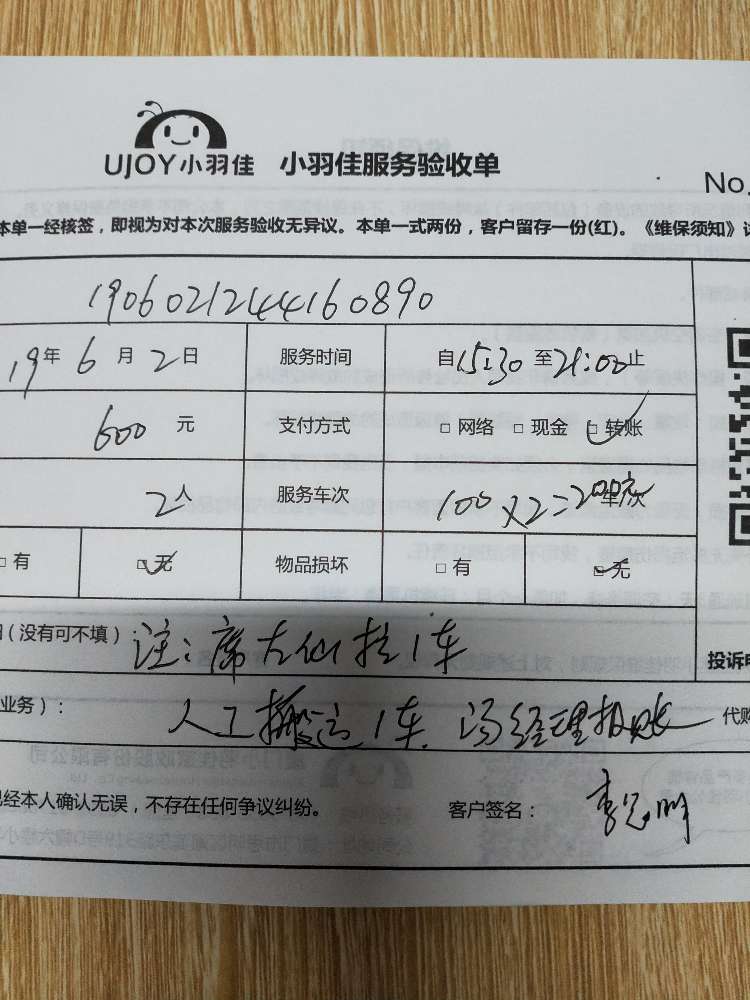 UJOY小羽佳 小羽佳服务验收单
No.
本单一经核签，即视为对本次服务验收无异议。本单一式两份，客户留存一份(红)。《维保须知》
1906021244160890
19年6月2日 服务时间 自15:30至21:00止
600元 支付方式 □网络 □现金 □转账
2人 服务车次 100×2=200元
□有 □无 物品损坏 □有 □无
(没有可不填)：注：席大仙拉1车
投诉电
业务)：人工搬运1车.冯经理报账 代购
经本人确认无误，不存在任何争议纠纷。 客户签名：李